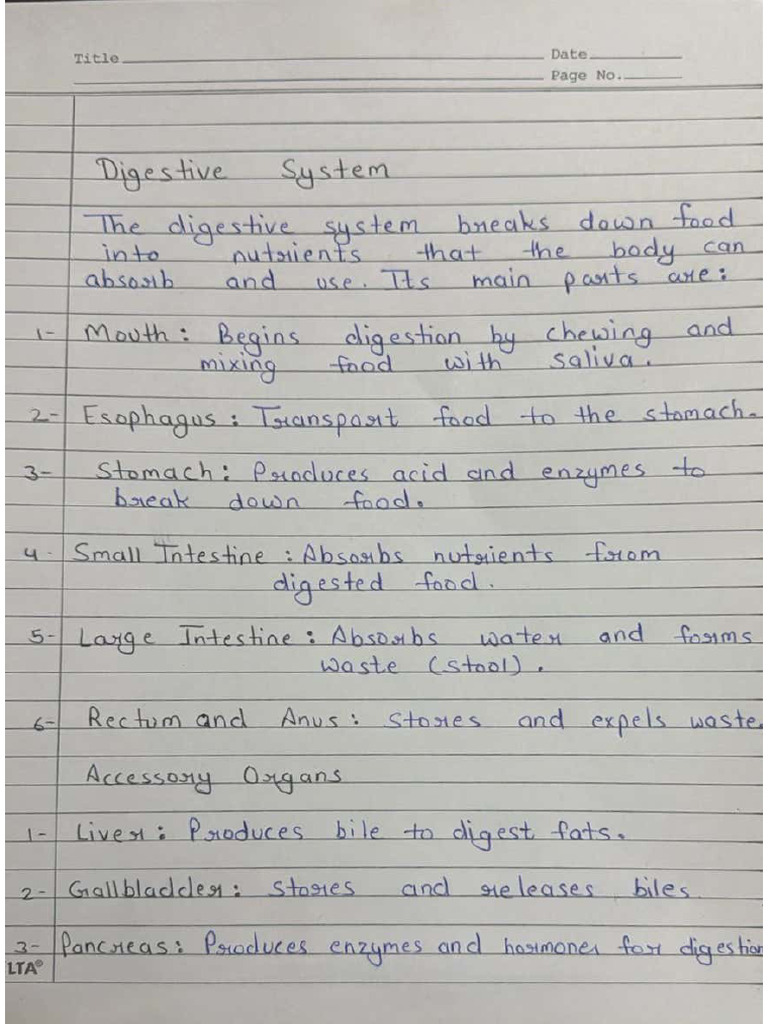 Title
Date
Page No.
Digestive System
The digestive system breaks down food
into nutrients that the body can
absorb and use. Its main parts are:
1- Mouth: Begins digestion by chewing and
mixing food with saliva.
2- Esophagus: Transport food to the stomach.
3- Stomach: Produces acid and enzymes to
break down food.
4- Small Intestine: Absorbs nutrients from
digested food.
5- Large Intestine: Absorbs water and forms
waste (stool).
6- Rectum and Anus: Stores and expels waste.
Accessory Organs
1- Liver: Produces bile to digest fats.
2- Gallbladder: Stores and releases biles.
3- Pancreas: Produces enzymes and hormones for digestion
LTA®